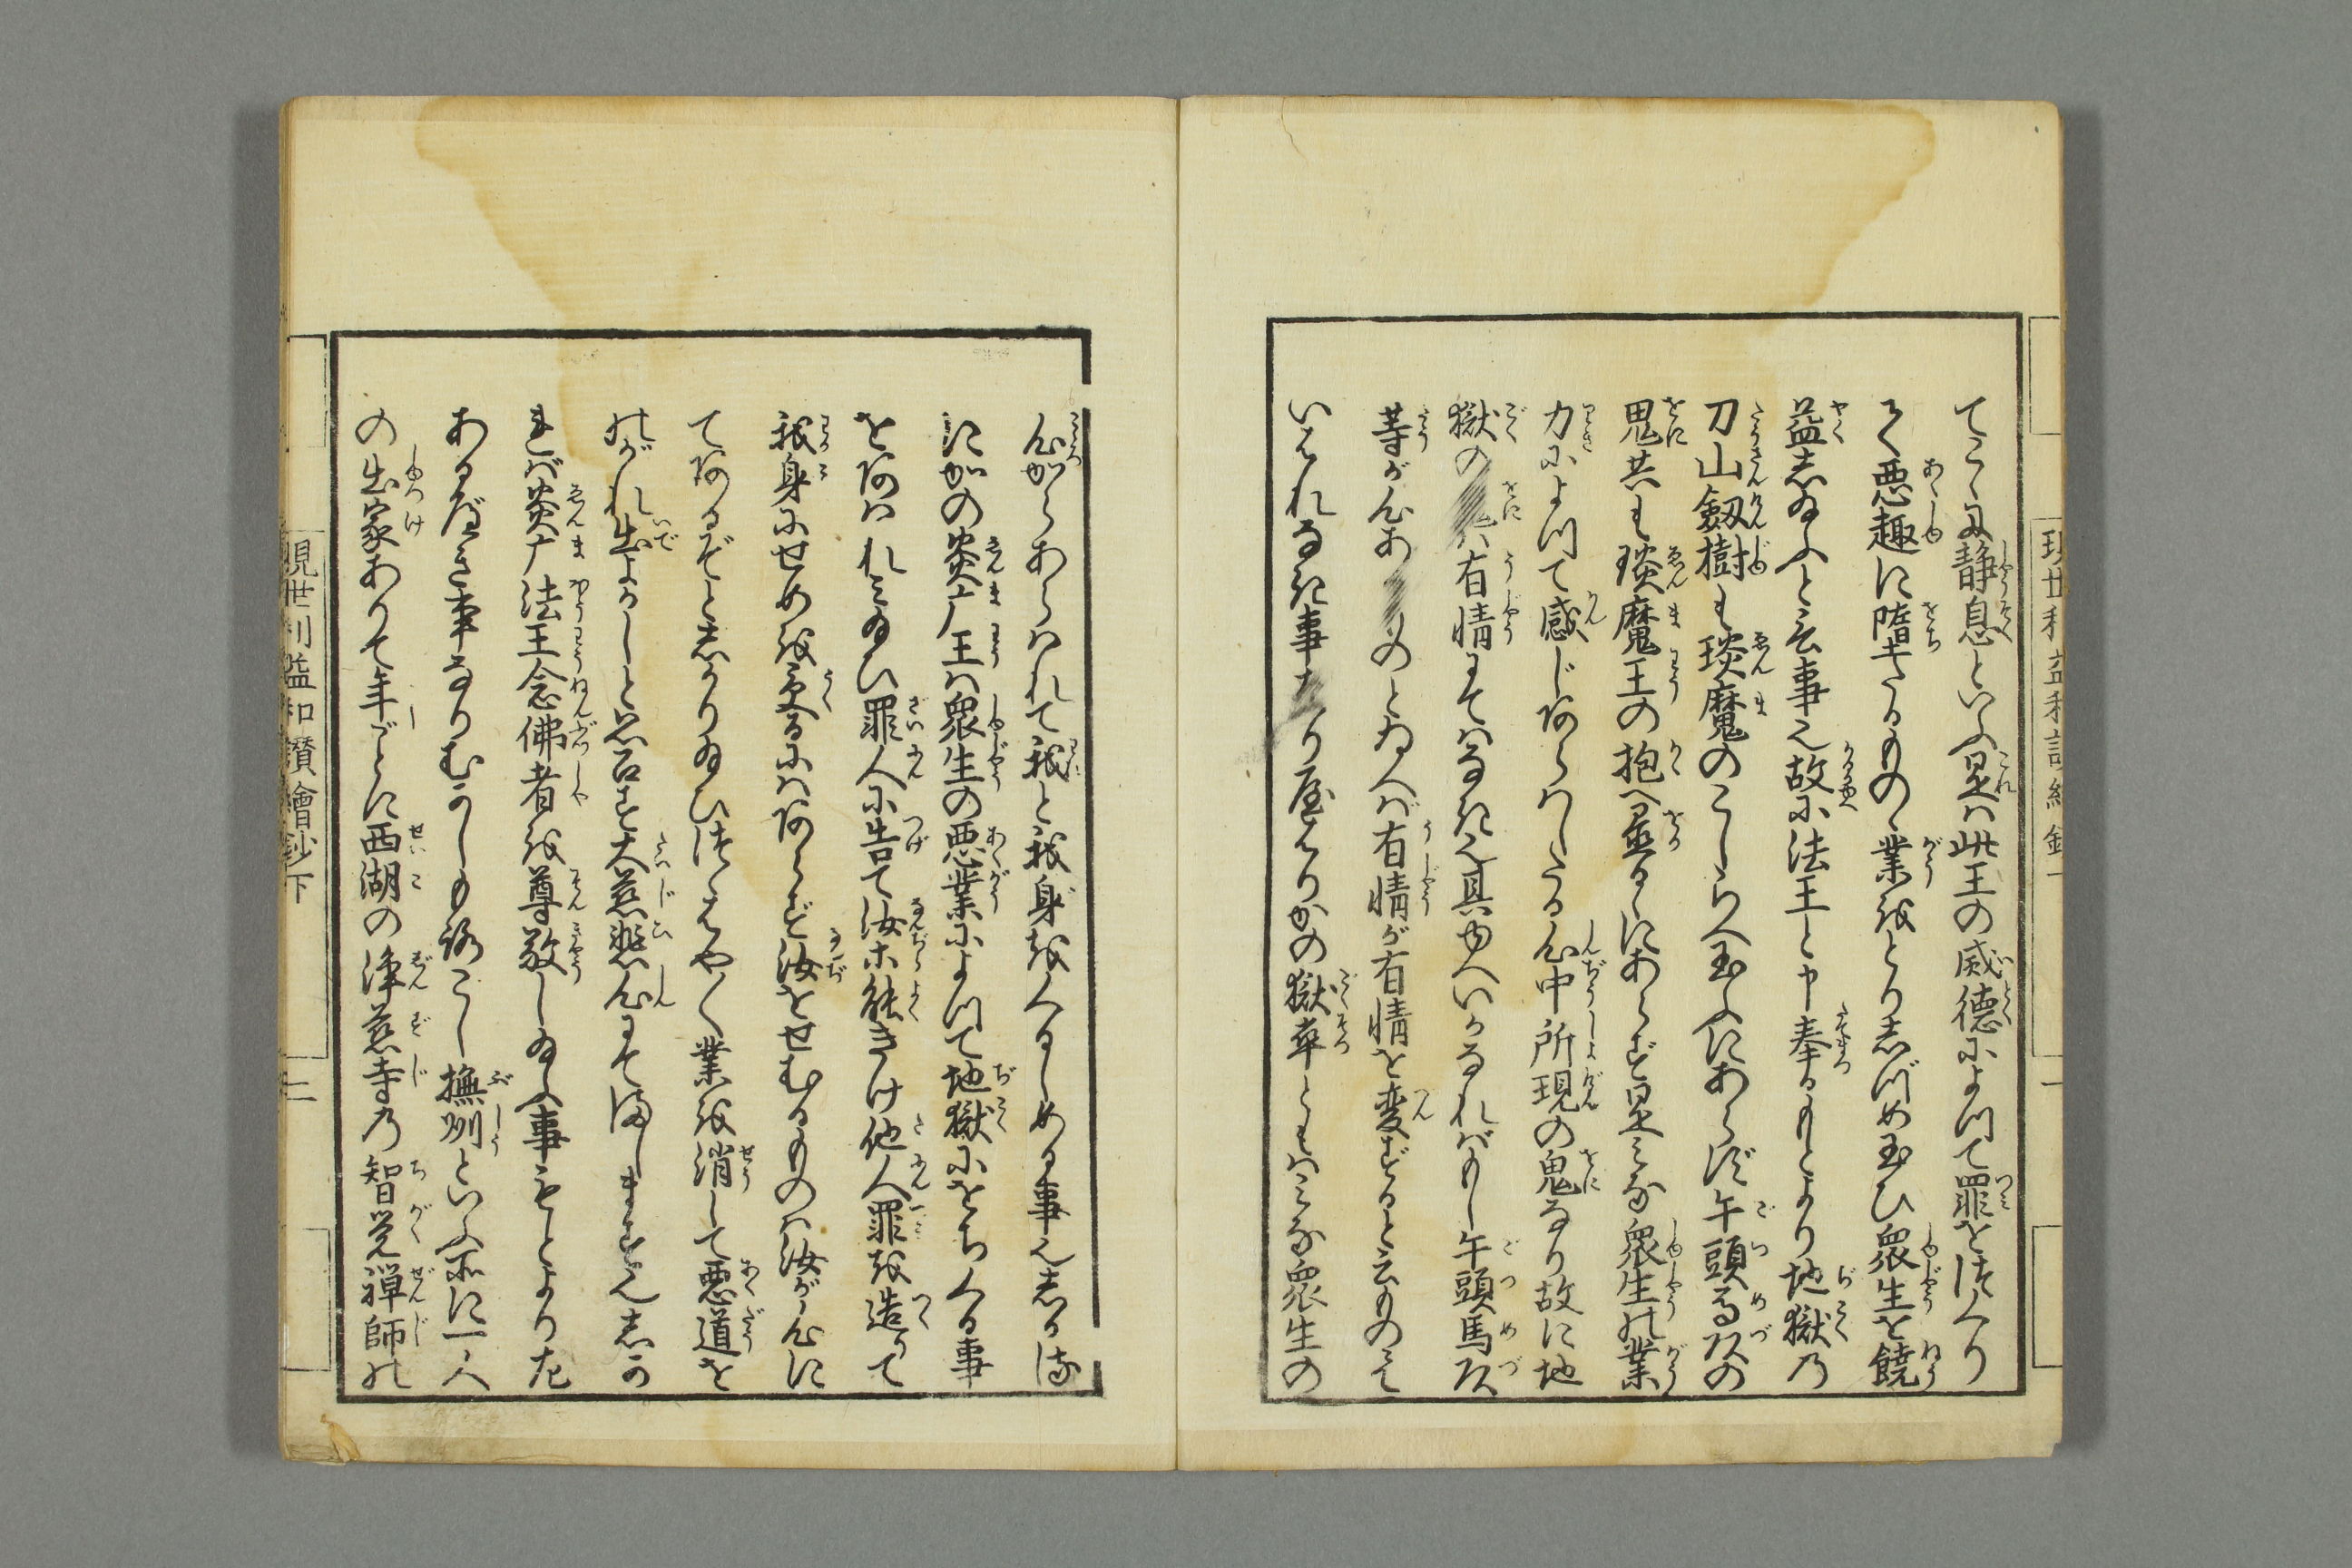 てこゝに静息といふ是は此王の威徳によつて罪をつくり
て悪趣に堕たるものゝ業をとりしづめ玉ひ衆生を饒
益し給ふと云事也故に法王と申奉るもとより地獄の
刀山劔樹も琰魔のこしらへ玉ふにあらず午頭馬頭の
鬼共も琰魔王の抱へ置るゝにあらず是みな衆生の業
力によつて感じあらはしたる心中所現の鬼なり故に地
獄の鬼は有情にてはなき也其ゆへいかなればもし午頭馬頭
等が心あ ものと給へば有情が有情を変ずると云ものにて
いはれなき事 り爰よりかの獄卒ともはみな衆生の
心からあらはれて我と我身をくるしめる事也しかる
にかの炎广王は衆生の悪業によつて地獄におちくる事
をあはれみ給ひ罪人に告て汝等能きけ他人罪を造りて
我身にせめを受るにはあらず汝をせむるものは汝が心に
てあるぞとしかり給ひつゝはやく業を消して悪道を
のがれ出よかしと思召す大慈悲心にてまします也しか
れば炎广法王念佛者を尊敬し給ふ事もとより左
あるべき事なりむかしもろこし撫州といふ所に一人
の出家ありて年ごとに西湖の浄慈寺乃智覚禅師の
現世利益和讃繪鈔下
二